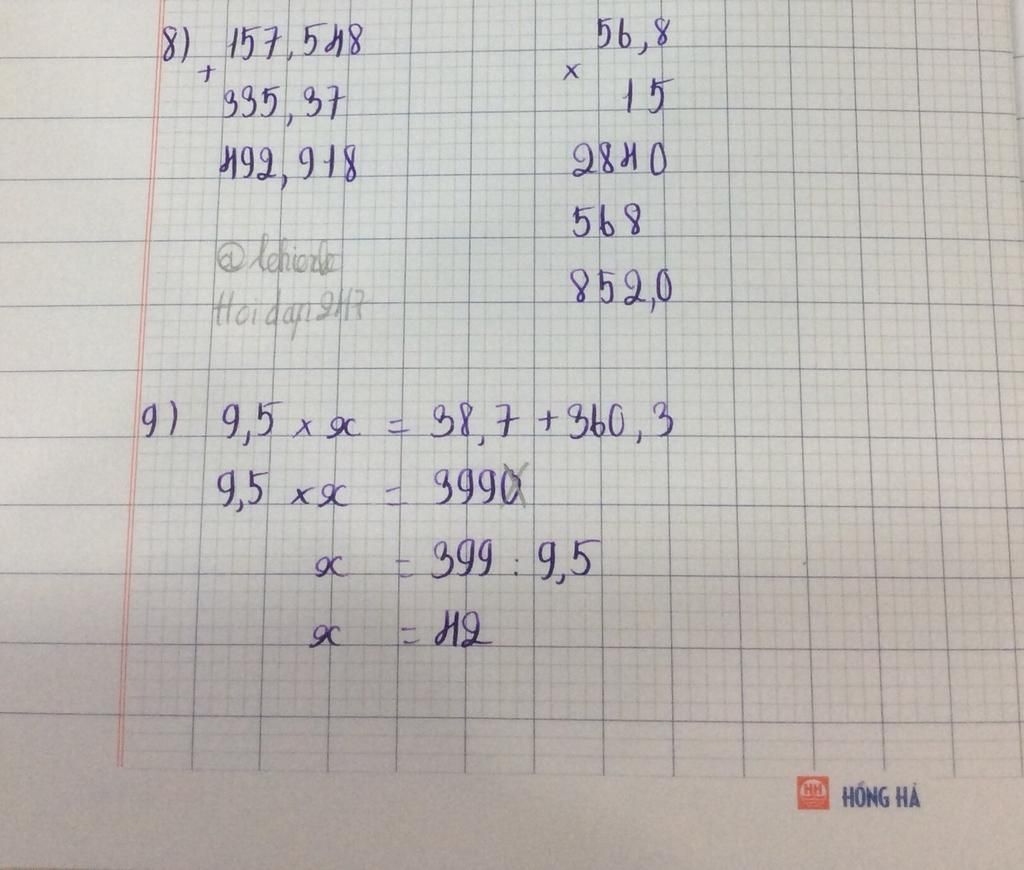 8) 157,548
+
335,37
492,918
56,8
×
15
2840
568
852,0
Hoidap247
9) 9,5 × x = 38,7 + 360,3
9,5 × x = 399
x = 399 : 9,5
x = 42
HH HỒNG HÀ